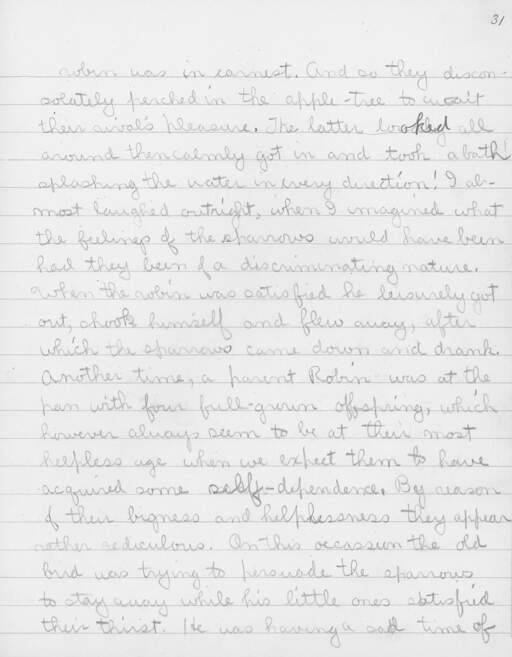 31
robin was in earnest. And so they discon-
solately perched in the apple-tree to await
their rival's pleasure. The latter looked all
around then calmly got in and took a bath!
splashing the water in every direction! I al-
most laughed outright, when I imagined what
the feelings of the sparrows would have been
had they been of a discriminating nature.
When the robin was satisfied he leisurely got
out, shook himself and flew away, after
which the sparrows came down and drank.
Another time, a parent Robin was at the
pan with four full-grown offspring, which
however always seem to be at their most
helpless age when we expect them to have
acquired some self-dependence. By reason
of their bigness and helplessness they appear
rather rediculous. On this occassion the old
bird was trying to persuade the sparrows
to stay away while his little ones satisfied
their thirst. He was having a sad time of